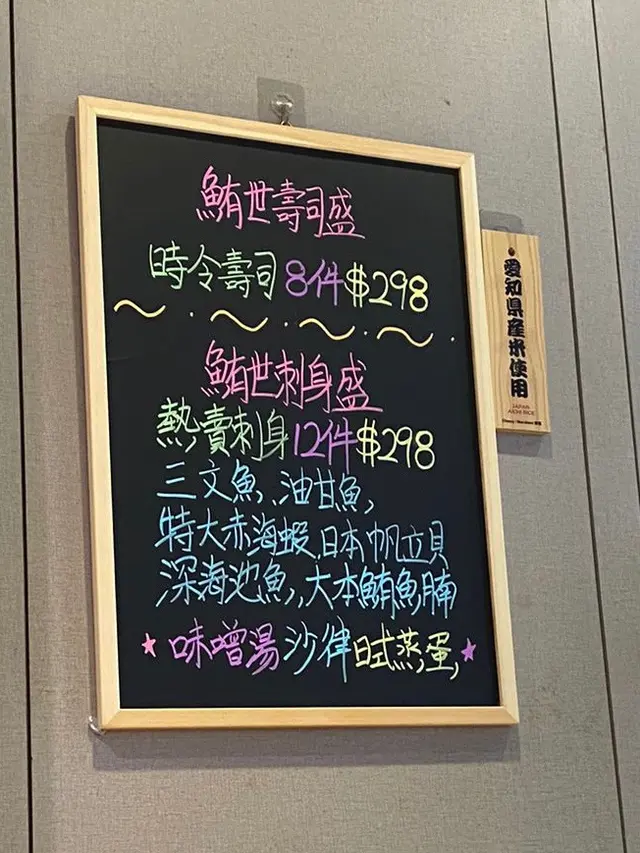 鮪世壽司盛
時令壽司8件$298
鮪世刺身盛
熱賣刺身12件$298
三文魚、油甘魚,
特大赤海蝦.日本帆立貝
深海池魚,,大本鮪魚腩
味噌湯沙律日式蒸蛋
愛知県産米使用
JAPAN
AICHI RICE